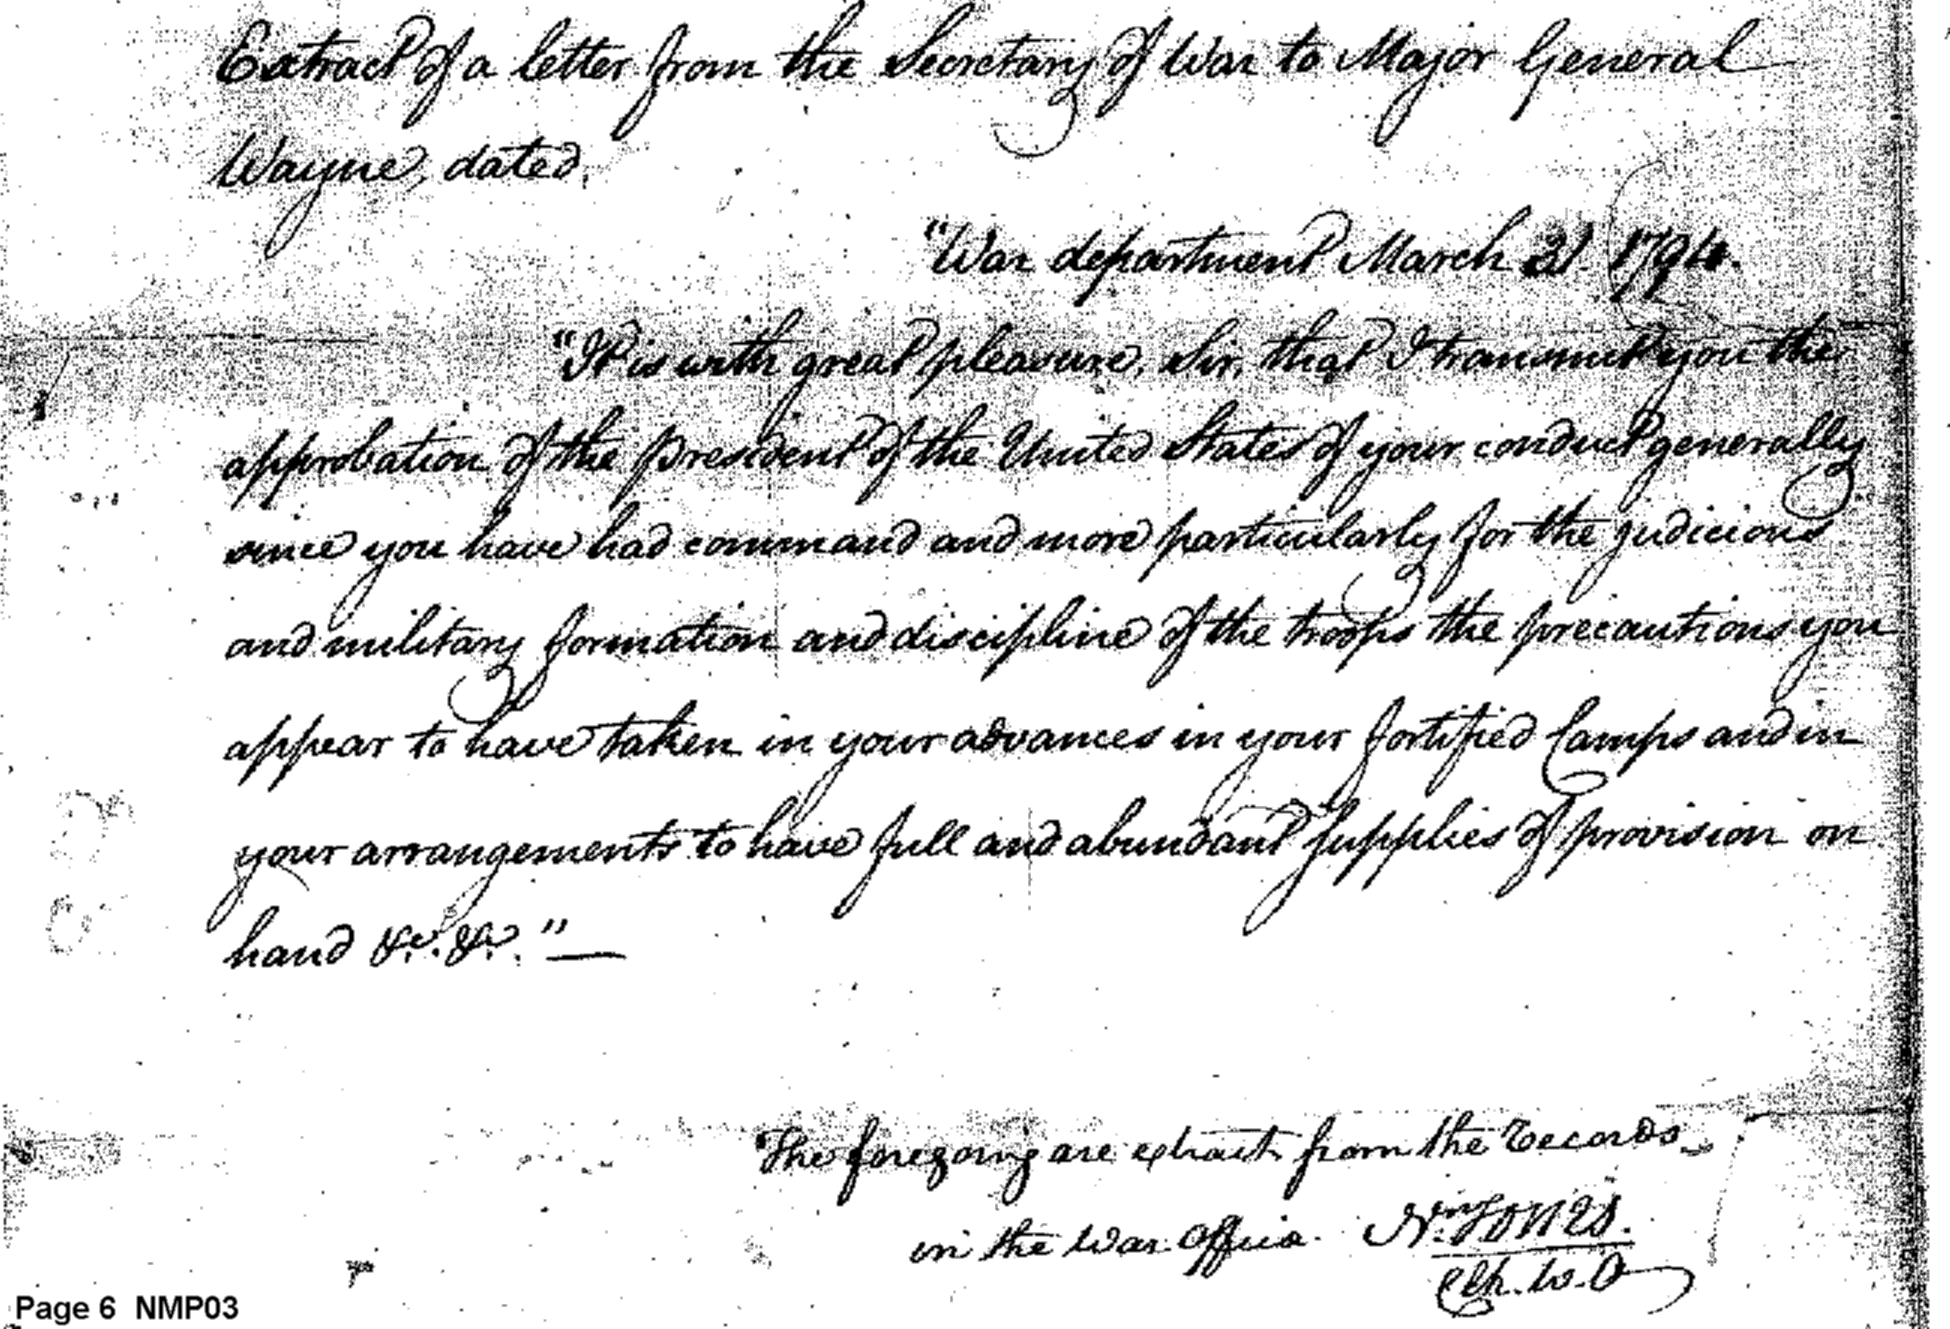 Extract of a letter from the Secretary of War to Major General
Wayne, dated,
"War department March 31. 1794.
"It is with great pleasure, Sir, that I transmit you the
approbation of the President of the United States of your conduct generally
since you have had command and more particularly for the judicious
and military formation and discipline of the troops the precautions you
appear to have taken in your advances in your fortified Camps and in
your arrangements to have full and abundant supplies of provision on
hand &c. &c."—
The foregoing are extracts from the records
in the War Office. Wm Jones.
Clk. W. O
Page 6 NMP03